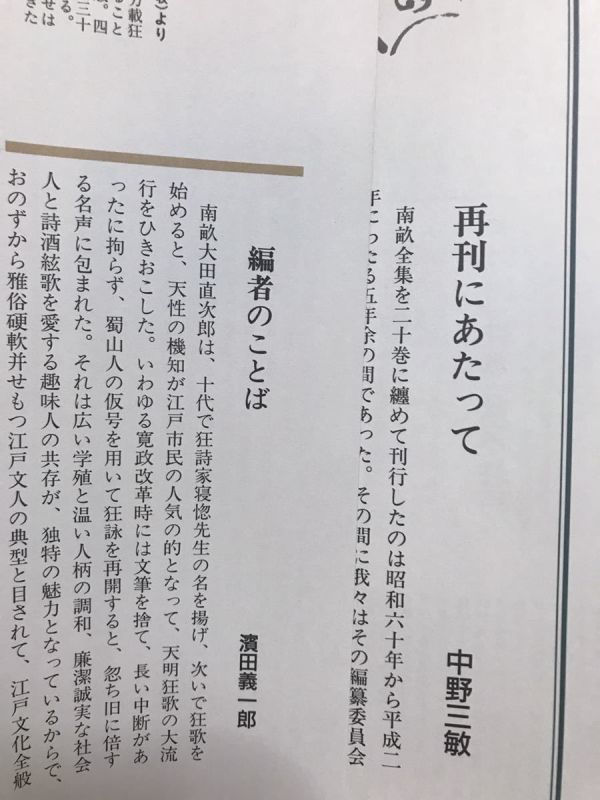 再刊にあたって
中野三敏
南畝全集を二十巻に纏めて刊行したのは昭和六十年から平成二
年にわたる五年余の間であった。その間に我々はその編纂委員会
より
こと
載狂
。四
三十
る。
せは
きた
編者のことば
濱田義一郎
南畝大田直次郎は、十代で狂詩家寝惚先生の名を揚げ、次いで狂歌を
始めると、天性の機知が江戸市民の人気の的となって、天明狂歌の大流
行をひきおこした。いわゆる寛政改革時には文筆を捨て、長い中断があ
ったに拘らず、蜀山人の仮号を用いて狂詠を再開すると、忽ち旧に倍す
る名声に包まれた。それは広い学殖と温い人柄の調和、廉潔誠実な社会
人と詩酒絃歌を愛する趣味人の共存が、独特の魅力となっているからで、
おのずから雅俗硬軟并せもつ江戸文人の典型と目されて、江戸文化全般